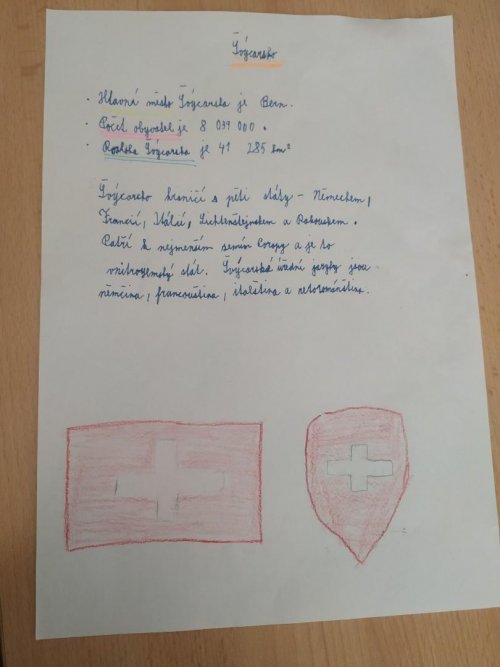 Švýcarsko
• Hlavní město Švýcarska je Bern.
• Počet obyvatel je 8 039 000.
• Rozloha Švýcarska je 41 285 km²
Švýcarsko hraničí s pěti státy – Německem,
Francií, Itálií, Lichtenštejnskem a Rakouskem.
Patří k nejmenším zemím Evropy a je to
vnitrozemský stát. Švýcarské úřední jazyky jsou
němčina, francouština, italština a retorománština.